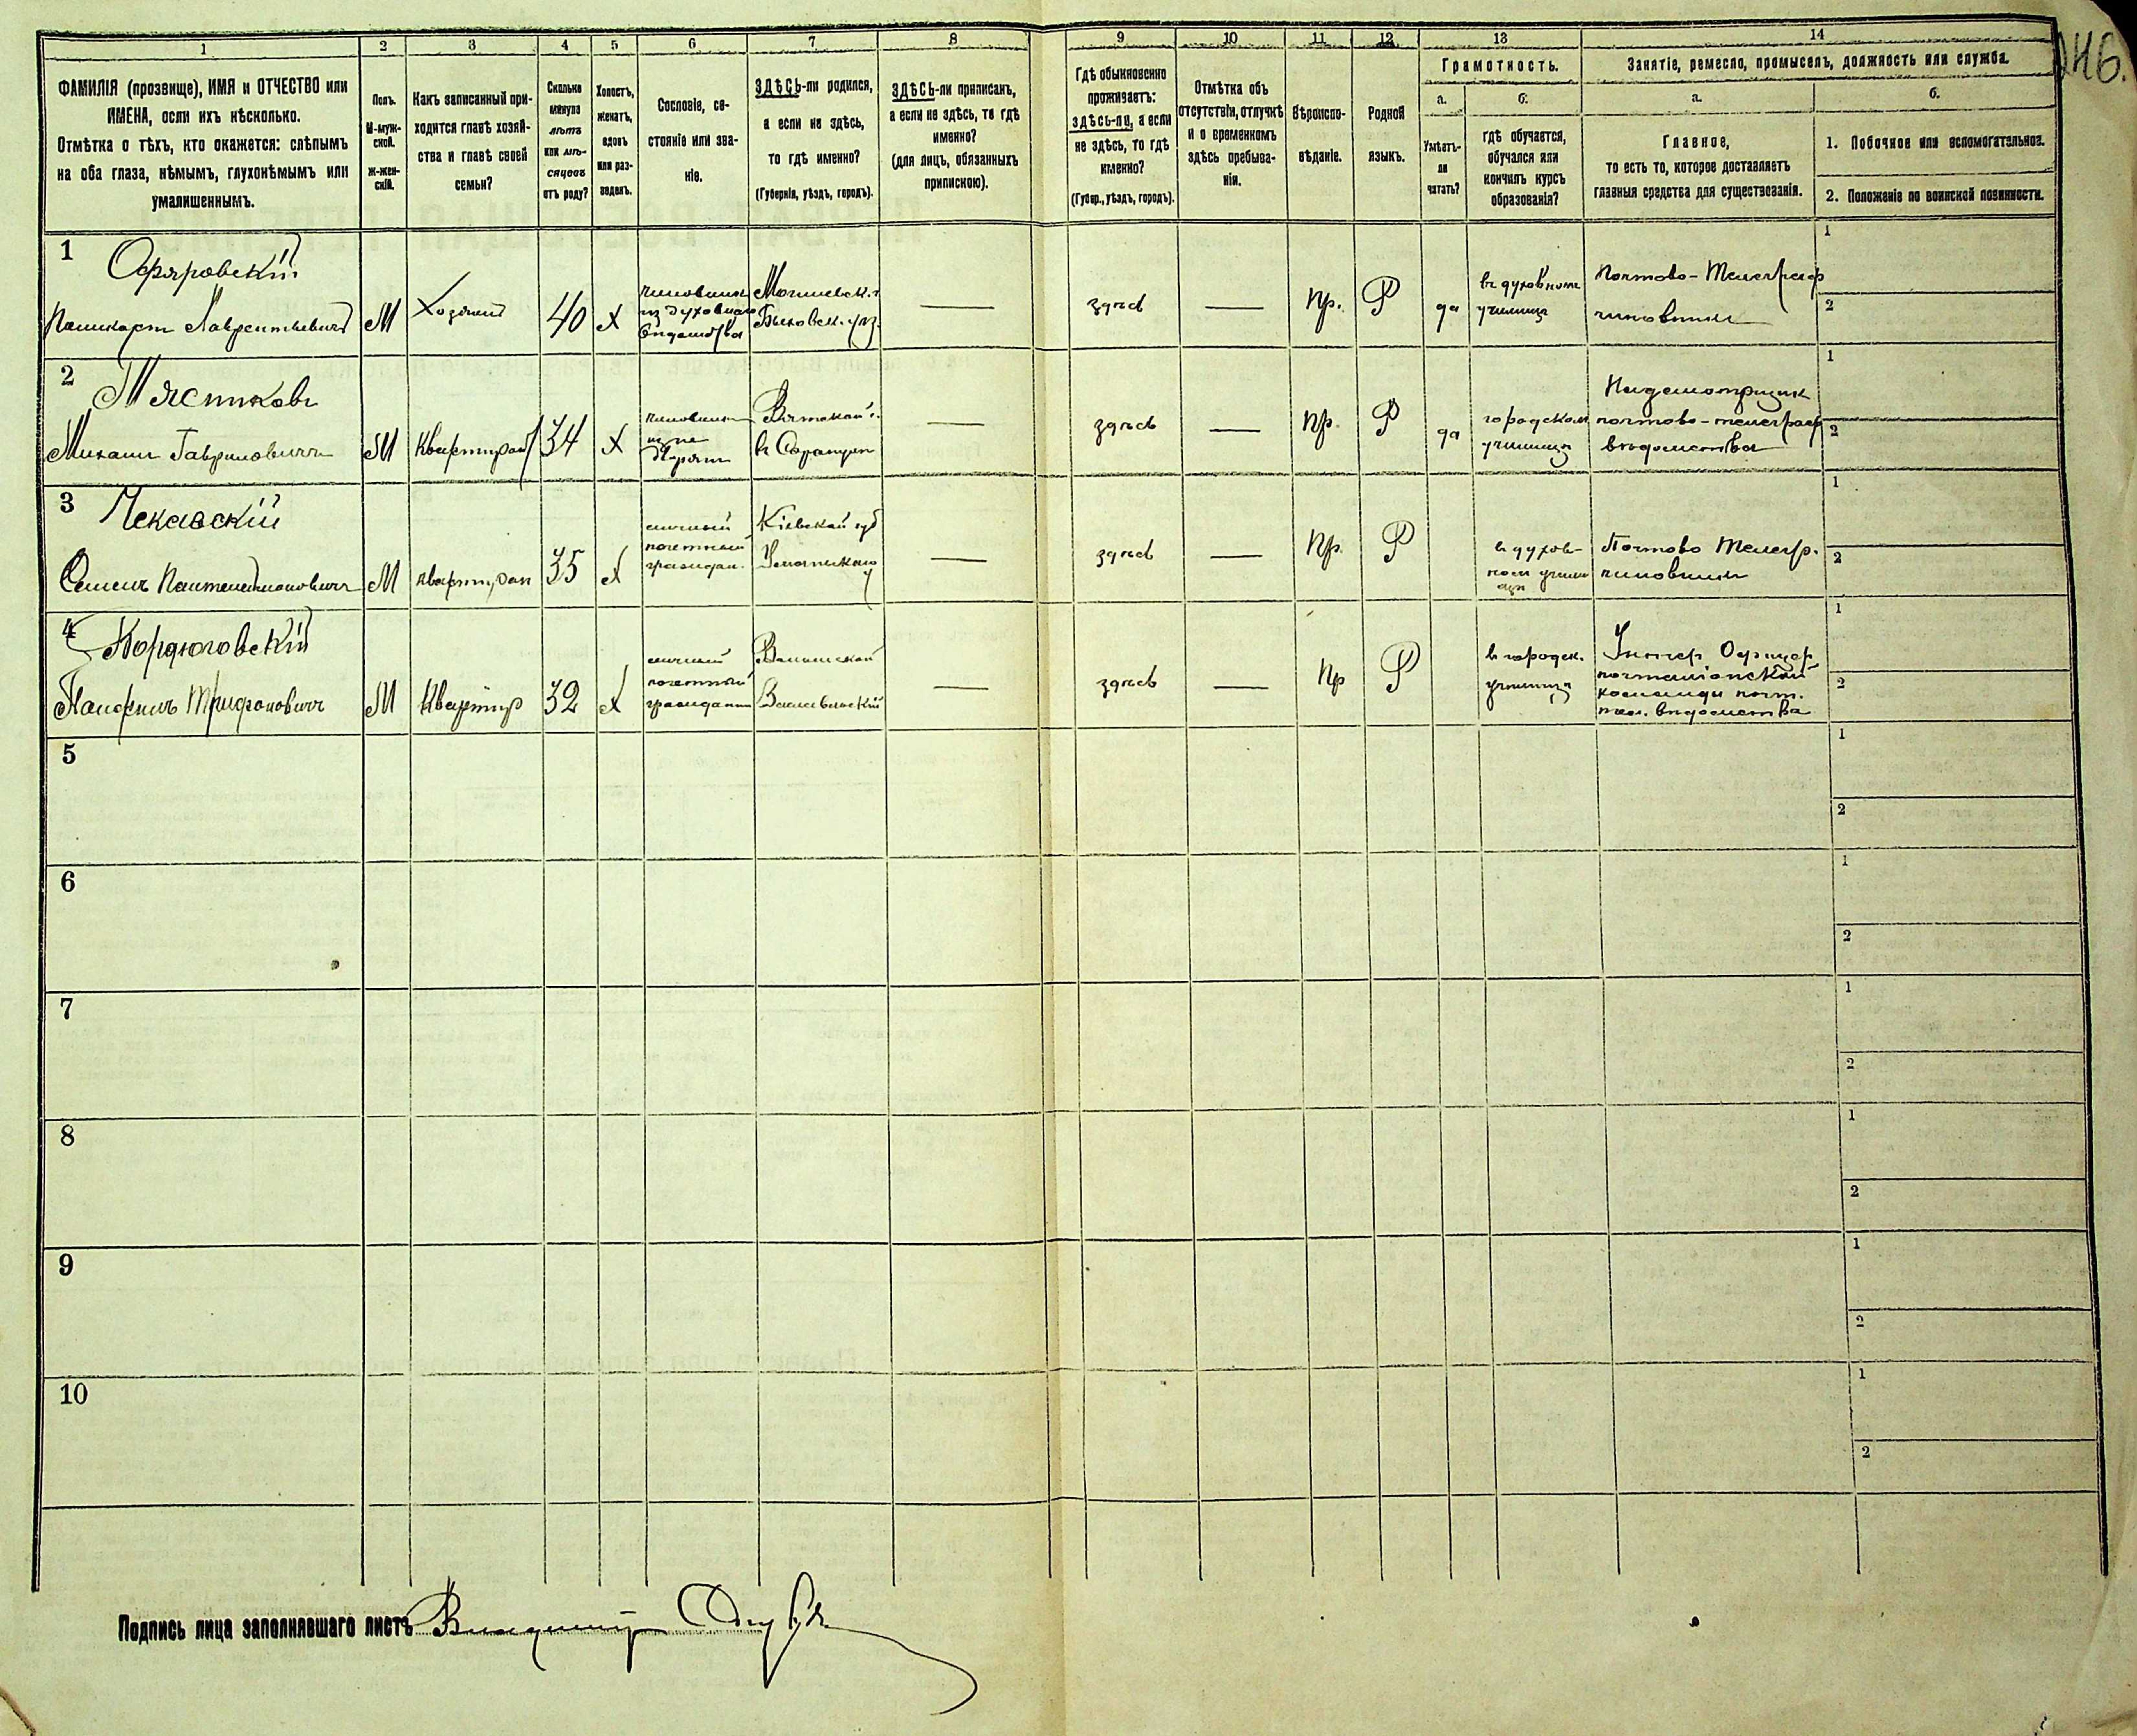 146.
1 2 3 4 5 6 7 8 9 10 11 12 13 14
ФАМИЛІЯ (прозвище), ИМЯ и ОТЧЕСТВО или
ИМЕНА, если ихъ нѣсколько.
Отмѣтка о тѣхъ, кто окажется: слѣпымъ
на оба глаза, нѣмымъ, глухонѣмымъ или
умалишеннымъ.
Полъ.
М-муж-
ской.
Ж-жен-
скій.
Какъ записанный при-
ходится главѣ хозяй-
ства и главѣ своей
семьи?
Сколько
минуло
лѣтъ
или мѣ-
сяцевъ
отъ роду?
Холостъ,
женатъ,
вдовъ
или раз-
веденъ.
Сословіе, со-
стояніе или зва-
ніе.
ЗДѢСЬ-ли родился,
а если не здѣсь,
то гдѣ именно?
(Губернія, уѣздъ, городъ).
ЗДѢСЬ-ли приписанъ,
а если не здѣсь, то гдѣ
именно?
(для лицъ, обязанныхъ
припискою).
Гдѣ обыкновенно
проживаетъ:
здѣсь-ли, а если
не здѣсь, то гдѣ
именно?
(Губер., уѣздъ, городъ).
Отмѣтка объ
отсутствіи, отлучкѣ
и о временномъ
здѣсь пребыва-
ніи.
Вѣроиспо-
вѣданіе.
Родной
языкъ.
Грамотность.
а.
Умѣетъ-
ли
читать?
б.
гдѣ обучается,
обучался или
кончилъ курсъ
образованія?
Занятіе, ремесло, промыселъ, должность или служба.
а.
Главное,
то есть то, которое доставляетъ
главныя средства для существованія.
б.
1. Побочное или вспомогательное.
2. Положеніе по воинской повинности.
1
Поликарпъ Лаврентьевичъ
М
Хозяинъ
40
Х
чиновникъ
из духовнаго
вѣдомства
Могилевск. г.
Быховск. уѣз.
здѣсь
Пр.
Р
да
въ духовномъ
училищѣ
Почтово-Телеграф
чиновникъ
1
2
2
Мястниковъ
Михаилъ Гавриловичъ
М
Квартирант
34
Х
чиновникъ
Вятской г.
здѣсь
Пр.
Р
да
городском
училищѣ
Надсмотрщик
почтово-телеграф
вѣдомства
1
2
3
М
квартиран
35
Х
личный
почетный
граждан.
Кіевской губ
Уманьскаго у
здѣсь
Пр.
Р
въ духов-
ном учили
щѣ
Почтово Телегр.
чиновникъ
1
2
4
Трифоновичъ
М
Квартир
32
Х
личный
почетный
гражданин
Волынской
здѣсь
Пр
Р
въ городск.
училищѣ
Унтер Офицер
почталіонской
команды почт.
тел. вѣдомства
1
2
5
1
2
6
1
2
7
1
2
8
1
2
9
1
2
10
1
2
Подпись лица заполнявшаго листъ Владимир